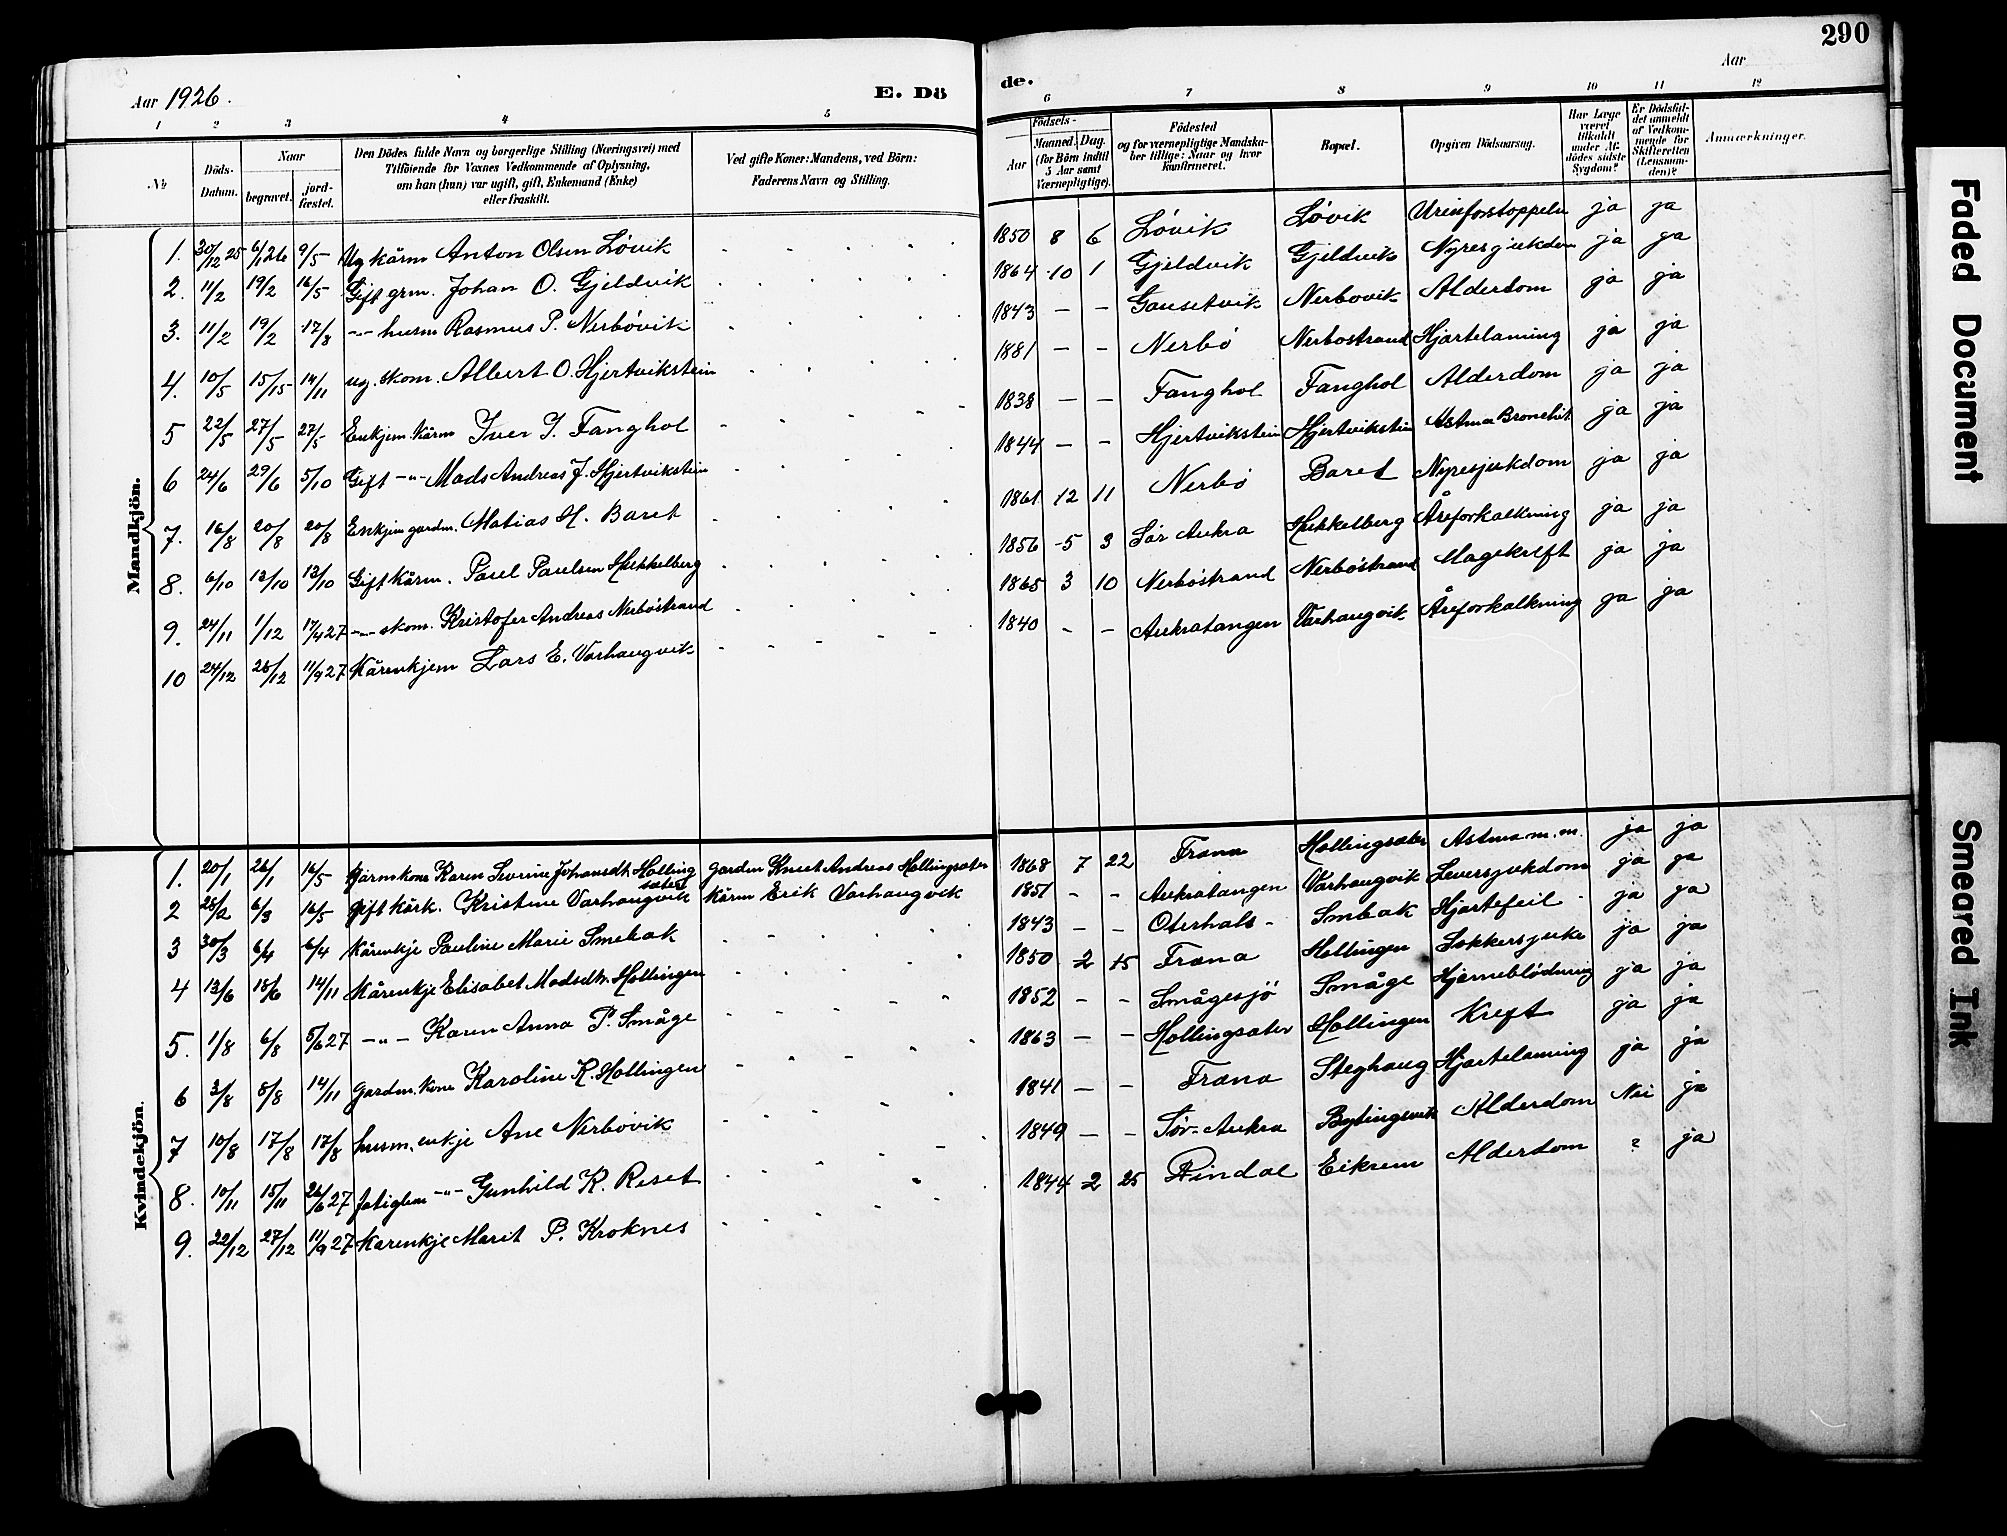 290
Aar 1926. E. Dö
de. Aar
1 2 3 4 5 6 7 8 9 10 11 12
№ Döds-Datum. Naar begravet. jord-fæstet. Den Dödes fulde Navn og borgerlige Stilling (Næringsvei) med Tilföiende for Voxnes Vedkommende af Oplysning, om han (hun) var ugift, gift, Enkemand (Enke) eller fraskilt. Ved gifte Koner: Mandens, ved Börn: Faderens Navn og Stilling.
Födsels- Aar Maaned. Dag. (for Börn indtil 5 Aar samt Værnepligtige). Födested og for værnepligtige Mandskaber tillige: Naar og hvor konfirmeret. Bopæl. Opgiven Dödsaarsag. Har Læge været tilkaldt under Afdödes sidste Sygdom? Er Dödsfaldet anmeldt af Vedkommende for Skifteretten (Lensmanden)? Anmærkninger.
Mandkjön.
1. 30/12 25 6/1 26 9/5 Ug kårm Anton Olsen Lövik 1850 8 6 Lövik Lövik Urinforstoppelse ja ja
2. 11/2 19/2 16/5 Gift grm. Johan O. Gjeldvik 1864 10 1 Gjeldvik Gjeldvik Nyresjukdom ja ja
3. 11/2 19/2 17/8 -"- husm Rasmus P. Nerbövik 1843 — — Gausetvik Nerbovik Alderdom ja ja
4. 10/5 15/15 14/11 ug. skom. Albert O. Hjertvikstein 1881 — — Nerbö Nerbostrand Hjartelaming ja ja
5 22/5 27/5 27/5 Enkjem. kårm Iver I. Fanghol 1838 — — Fanghol Fanghol Alderdom ja ja
6 24/6 29/6 5/10 Gift -"- Mads Andreas J. Hjertvikstein 1844 — — Hjertvikstein Hjertvikstein Astma Bronchit ja ja
7. 16/8 20/8 20/8 Enkjem gardm. Matias H. Baret 1861 12 11 Nerbö Baret Nyresjukdom ja ja
8. 6/10 12/10 13/10 Gift kårm. Paul Paulsen Hukkelberg 1856 5 3 Sör Aukra Hukkelberg Åreforkalkning ja ja
9. 24/11 1/12 17/4 27 -"- skom. Kristofer Andreas Nerböstrand 1865 3 10 Nerböstrand Nerböstrand Magekreft ja ja
10 24/12 28/12 11/9 27 Kårenkjem Lars E. Varhaugvik 1840 - — Aukratangen Varhaugvik Åreforkalkning ja ja
Kvindekjön.
1. 20/1 26/1 16/5 Kårmkone Karen Severine Johansdt. Hollingsæter gardm Knut Andreas Hollingsæter 1868 7 22 Fræna Hollingsæter Astma m.m. ja ja
2 28/2 6/3 16/5 gift kårk. Kristine Varhaugvik kårm Erik Varhaugvik 1851 - - Aukratangen Varhaugvik Leversjukdom ja ja
3 30/3 6/4 6/4 Kårenkje Pauline Marie Smebak 1843 — — Oterhals Smbak Hjartefeil ja ja
4 13/6 18/6 14/11 Kårenkje Elisabet Madsdtr. Hollingen 1850 2 15 Fræna Hollingen Sokkersjuke ja ja
5. 1/8 6/8 5/6 27 -"- Karen Anna P. Småge 1852 - - Smågesjö Småge Hjerneblödning ja ja
6 3/8 8/8 14/11 gardm. kone Karoline K. Hollingen 1863 — — Hollingsæter Hollingen Kreft ja ja
7 10/8 17/8 17/8 husm. enkje Ane Nerbövik 1841 — — Fræna Steghaug Hjartelaming ja ja
8. 10/11 15/11 26/6 27 fatiglem -"- Gunhild K. Reset 1849 — — Sör-Aukra Bylingsvik Alderdom Nei ja
9. 22/12 27/12 11/9 27 Kårenkje Marit P. Kroknes 1844 2 25 Rindal Eikrem Alderdom ? ja
Faded Document
Smeared Ink